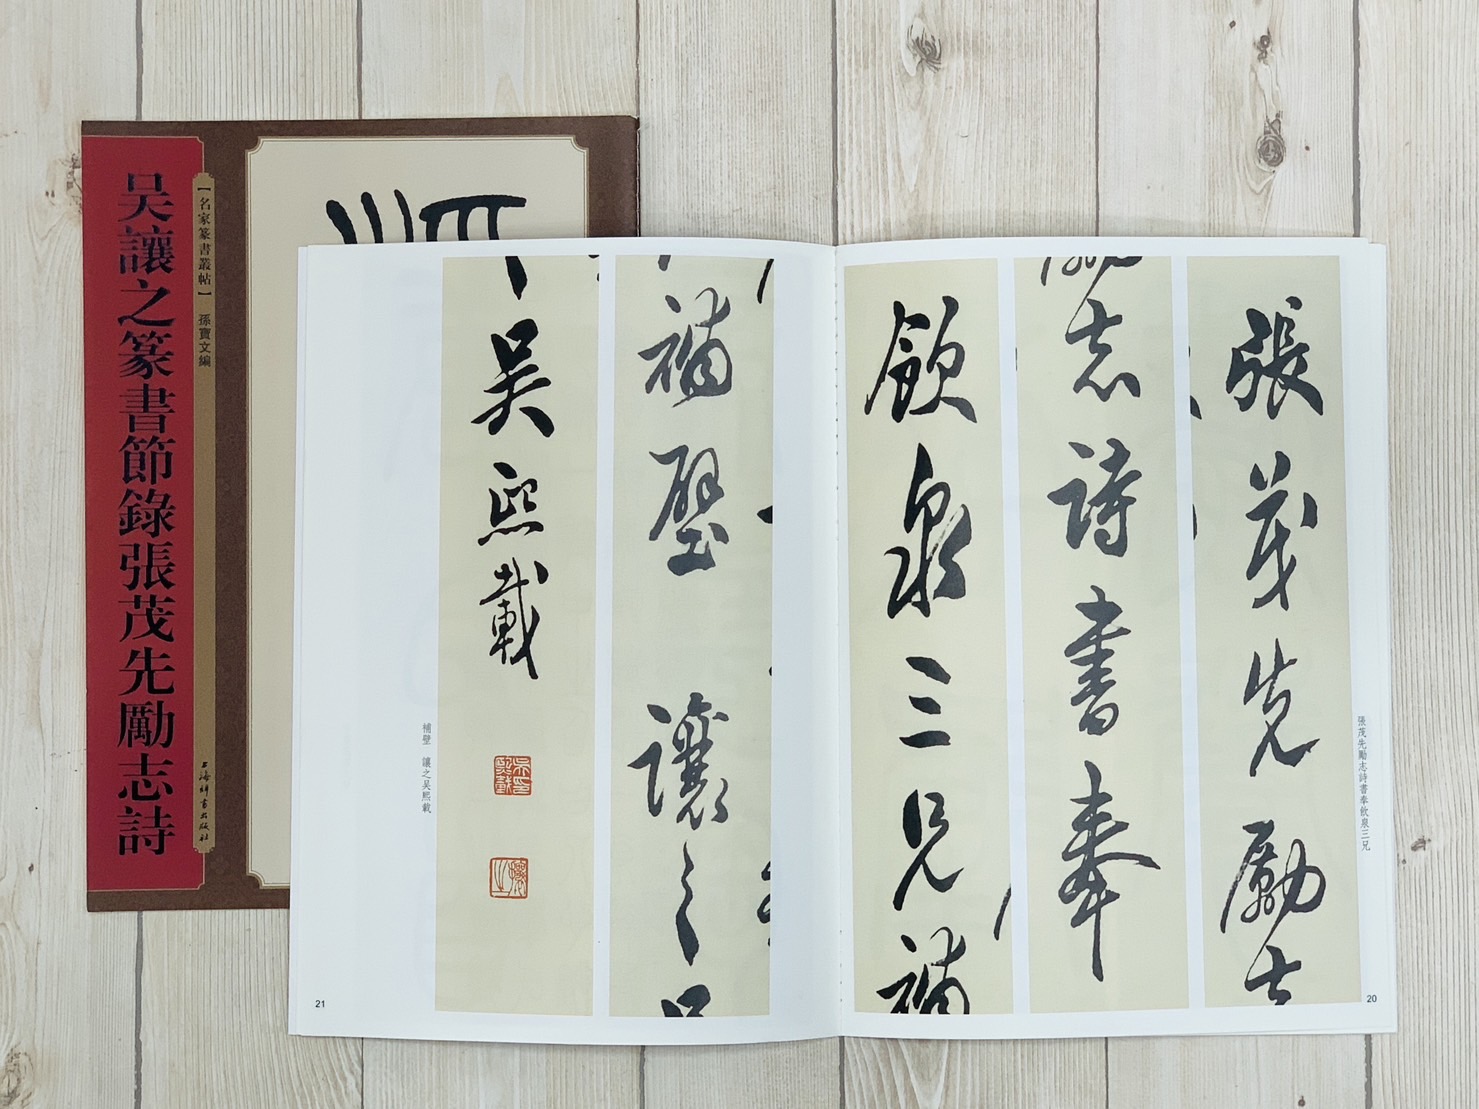 吴讓之篆書節錄張茂先勵志詩
【名家篆書叢帖】 孫寶文編
上海辭書出版社
張茂先勵志
勵志詩書奉
飲泉三兄補
補壁 讓之吳
吳熙載
吳熙載印
讓之
張茂先勵志詩書奉飲泉三兄
補壁 讓之吳熙載
20
21